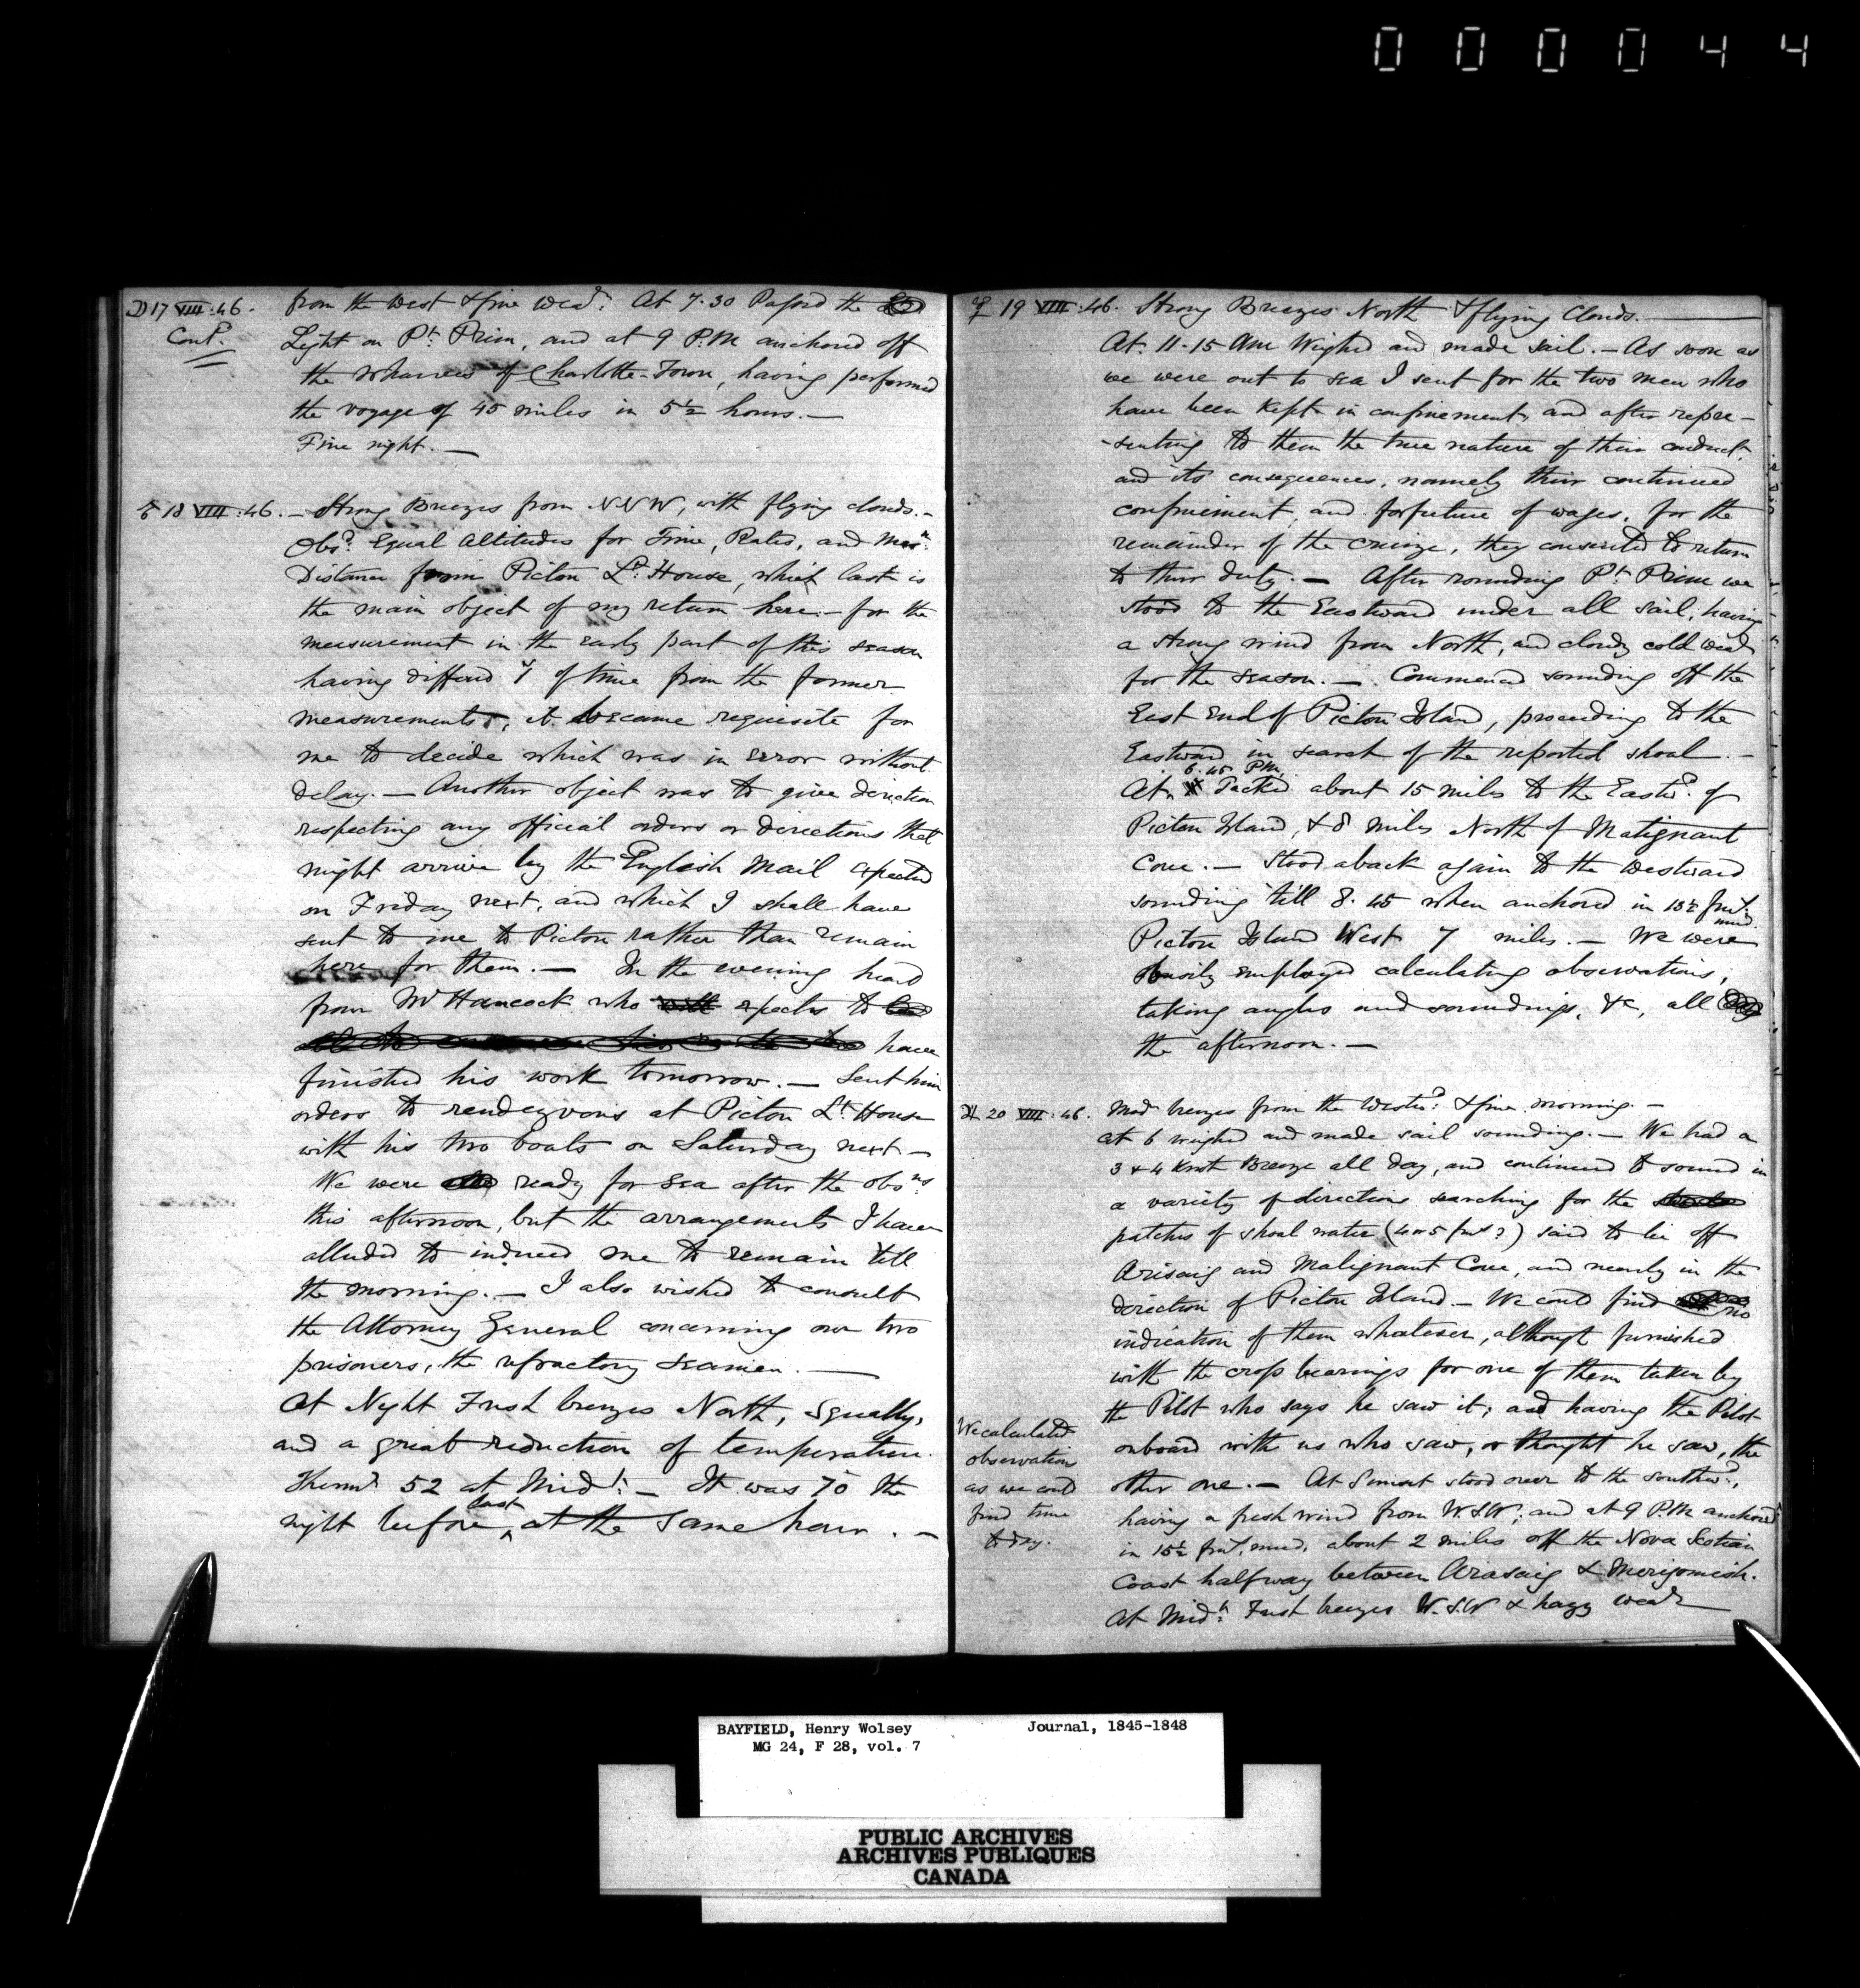 000044
☽ 17 VIII :46.
Cont.d
from the West & fine Wea.r At 7.30 Passed the
Light on P.t Prim, and at 9 P.M anchored off
the Wharves of Charlotte-Town, having performed
the voyage of 45 miles in 5½ hours. —
Fine night. —
18 VIII :46. — Strong Breezes from NNW, with flying clouds. —
Obs.d Equal Altitudes for Time, Rates, and Mer.n
Distance from Picton L.t House, which last is
the main object of my return here. — for the
measurement in the early part of this season
having differed of time from the former
measurements, it became requisite for
me to decide which was in error without
delay. — Another object was to give direction
respecting any official orders or directions that
might arrive by the English Mail expected
on Friday next, and which I shall have
sent to me to Picton rather than remain
here for them. — In the evening heard
from Mr Hancock who will expects to
have
finished his work tomorrow. — Sent him
orders to rendezvous at Picton L.t House
with his two boats on Saturday next. —
We were ready for Sea after the obs.ns
this afternoon, but the arrangements I have
alluded to induced me to remain till
the morning. — I also wished to consult
the Attorney General concerning our two
prisoners, the refractory seamen. —
At Night Fresh breezes North, squally,
and a great reduction of temperature.
Therm.r 52 at Mid.t — It was 70 the
night before last, at the same hour. —
☿ 19 VIII :46. Strong Breezes North & flying Clouds. —
At 11-15 AM Weighed and made sail. — As soon as
we were out to sea I sent for the two men who
have been kept in confinement, and after repre-
-senting to them the true nature of their conduct,
and its consequences, namely their continued
confinement, and forfeiture of wages, for the
remainder of the cruize, they consented to return
to their duty. — After rounding P.t Prim we
stood to the Eastward under all sail, having
a strong wind from North, and cloudy cold wea.r
for the season. — Commenced sounding off the
East End of Picton Island, proceeding to the
Eastward in search of the reported shoal. —
6.45 PM
At Tacked about 15 miles to the East.d of
Picton Island, & 8 miles North of Malignant
Cove. — Stood aback again to the Westward
sounding till 8.45 when anchored in 13½ fms.
mud.
Picton Island West 7 miles. — We were
busily employed calculating observations,
taking angles and soundings, &c, all
the afternoon. —
♃ 20 VIII :46. Mod. breezes from the West.d & fine morning. —
at 6 weighed and made sail sounding. — We had a
3 & 4 Knot Breeze all day, and continued to sound in
a variety of directions searching for the
patches of shoal water (4 or 5 fms ?) said to lie off
Arisaig and Malignant Cove, and nearly in the
direction of Picton Island. — We could find no
indication of them whatever, although furnished
with the cross bearings for one of them taken by
the Pilot who says he saw it; and having the Pilot
onboard with us who saw, or thought he saw, the
other one. — At Sunset stood over to the southw.d,
having a fresh wind from W.S.W; and at 9 P.M anchored
in 15½ fms, mud, about 2 miles off the Nova Scotian
Coast halfway between Arasaig & Merigomish.
At Mid.t Fresh breezes W.S.W & hazy wea.r
We calculated
observations
as we could
find time
to day.
BAYFIELD, Henry Wolsey Journal, 1845-1848
MG 24, F 28, vol. 7
PUBLIC ARCHIVES
ARCHIVES PUBLIQUES
CANADA